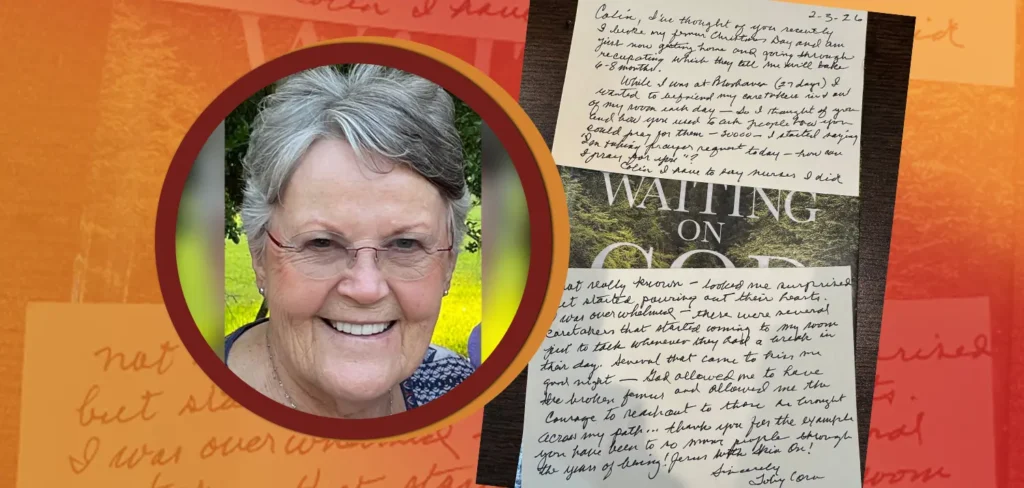 2-3-26
Colin, I've thought of you recently
I broke my femur Christmas Day and am
just now getting home and going through
recuperating which they tell me will take
6-8 months.
While I was at (27 days) I
wanted to befriend my caretakers in & out
of my room each day — So I thought of you
and how you used to ask people how you
could pray for them — Soooo — I started saying
"I'm taking prayer request today — how can
I pray for you"?
Colin I have to say nurses I did
WAITING
ON
GOD
not really known — looked me surprised
but started pouring out their hearts.
I was overwhelmed — there were several
caretakers that started coming to my room
just to talk whenever they had a break in
their day. Several that came to kiss me
good night — God allowed me to have
the broken femur and allowed me the
courage to reach out to those he brought
across my path... Thank you for the example
you have been to so many people through
the years of being! Jesus with skin on!
Sincerely